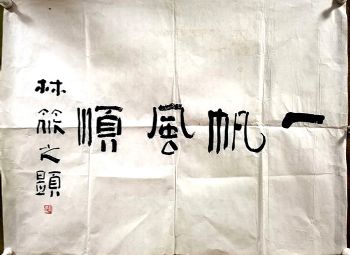 一帆風順
林筱之題